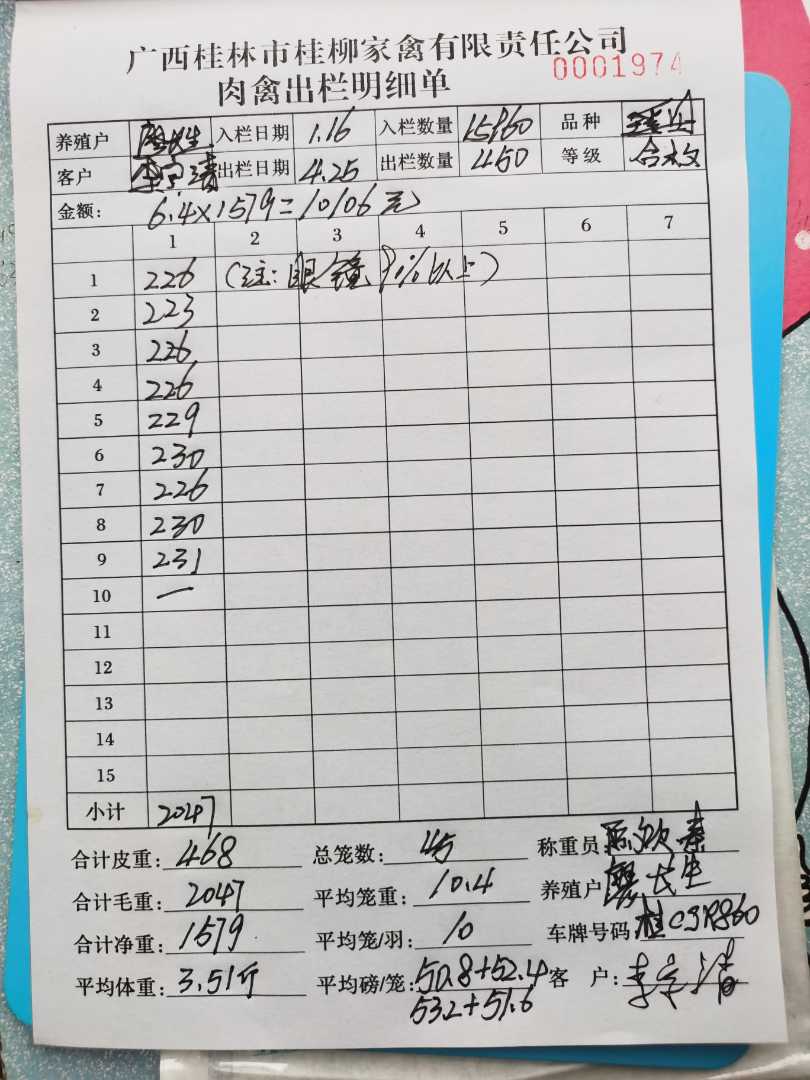 广西桂林市桂柳家禽有限责任公司
肉禽出栏明细单 0001974
养殖户 入栏日期 1.16 入栏数量 15960 品种
客户 出栏日期 4.25 出栏数量 450 等级
金额: 6.4×1579=10106元
1 2 3 4 5 6 7
1 226 (注:眼镜 91%以上)
2 223
3 226
4 226
5 229
6 230
7 226
8 230
9 231
10 一
11
12
13
14
15
小计 2047
合计皮重: 468 总笼数: 45 称重员
合计毛重: 2047 平均笼重: 10.4 养殖户 长生
合计净重: 1579 平均笼/羽: 10 车牌号码: 桂
平均体重: 3.51斤 平均磅/笼: 50.8+52.4 客户:
53.2+51.6